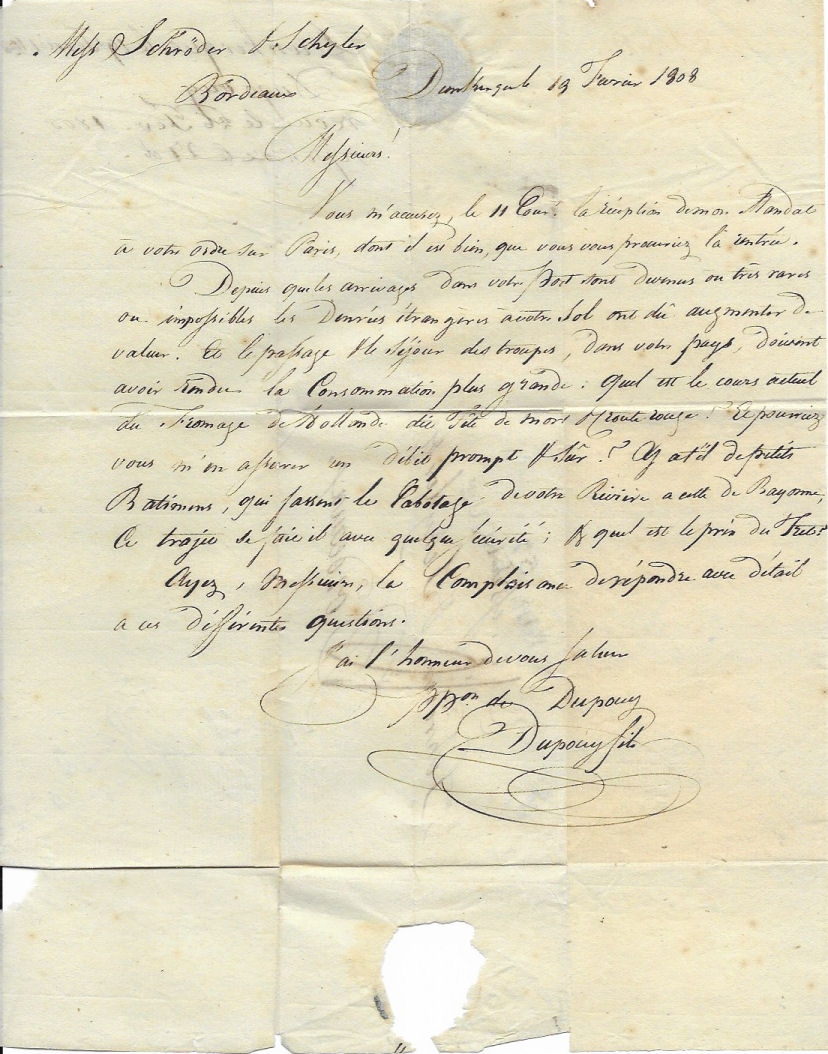 Mess Schröder & Schyler
Bordeaux
Dunkerque le 19 Fevrier 1808
Messieurs!
Vous m'accusez, le 11 Cour.t la réception de mon Mandat
à votre ordre sur Paris, dont il est bien, que vous vous procuriez la rentrée.
Depuis que les arrivages dans votre Port sont devenus ou très rares
ou impossibles les Denrées étrangeres à votre Sol ont dû augmenter de
valeur. Et le passage & le séjour des troupes, dans votre pays, doivent
avoir rendu la Consommation plus grande: quel est le cours actuel
du Fromage de Hollande dit Tête de mort & croute rouge? Et pourriez
vous m'en assurer un débit prompt & sûr? Y a t'il de petits
Batimens, qui fassent le Cabotage de votre Rivière a celle de Bayonne,
Ce trajet se fait il avec quelque sécurité; & quel est le prix du Fret?
Ayez, Messieurs, la Complaisance de répondre avec détail
a ces différentes questions.
J'ai l'honneur de vous saluer
ppon de Dupouy
Dupouy fils